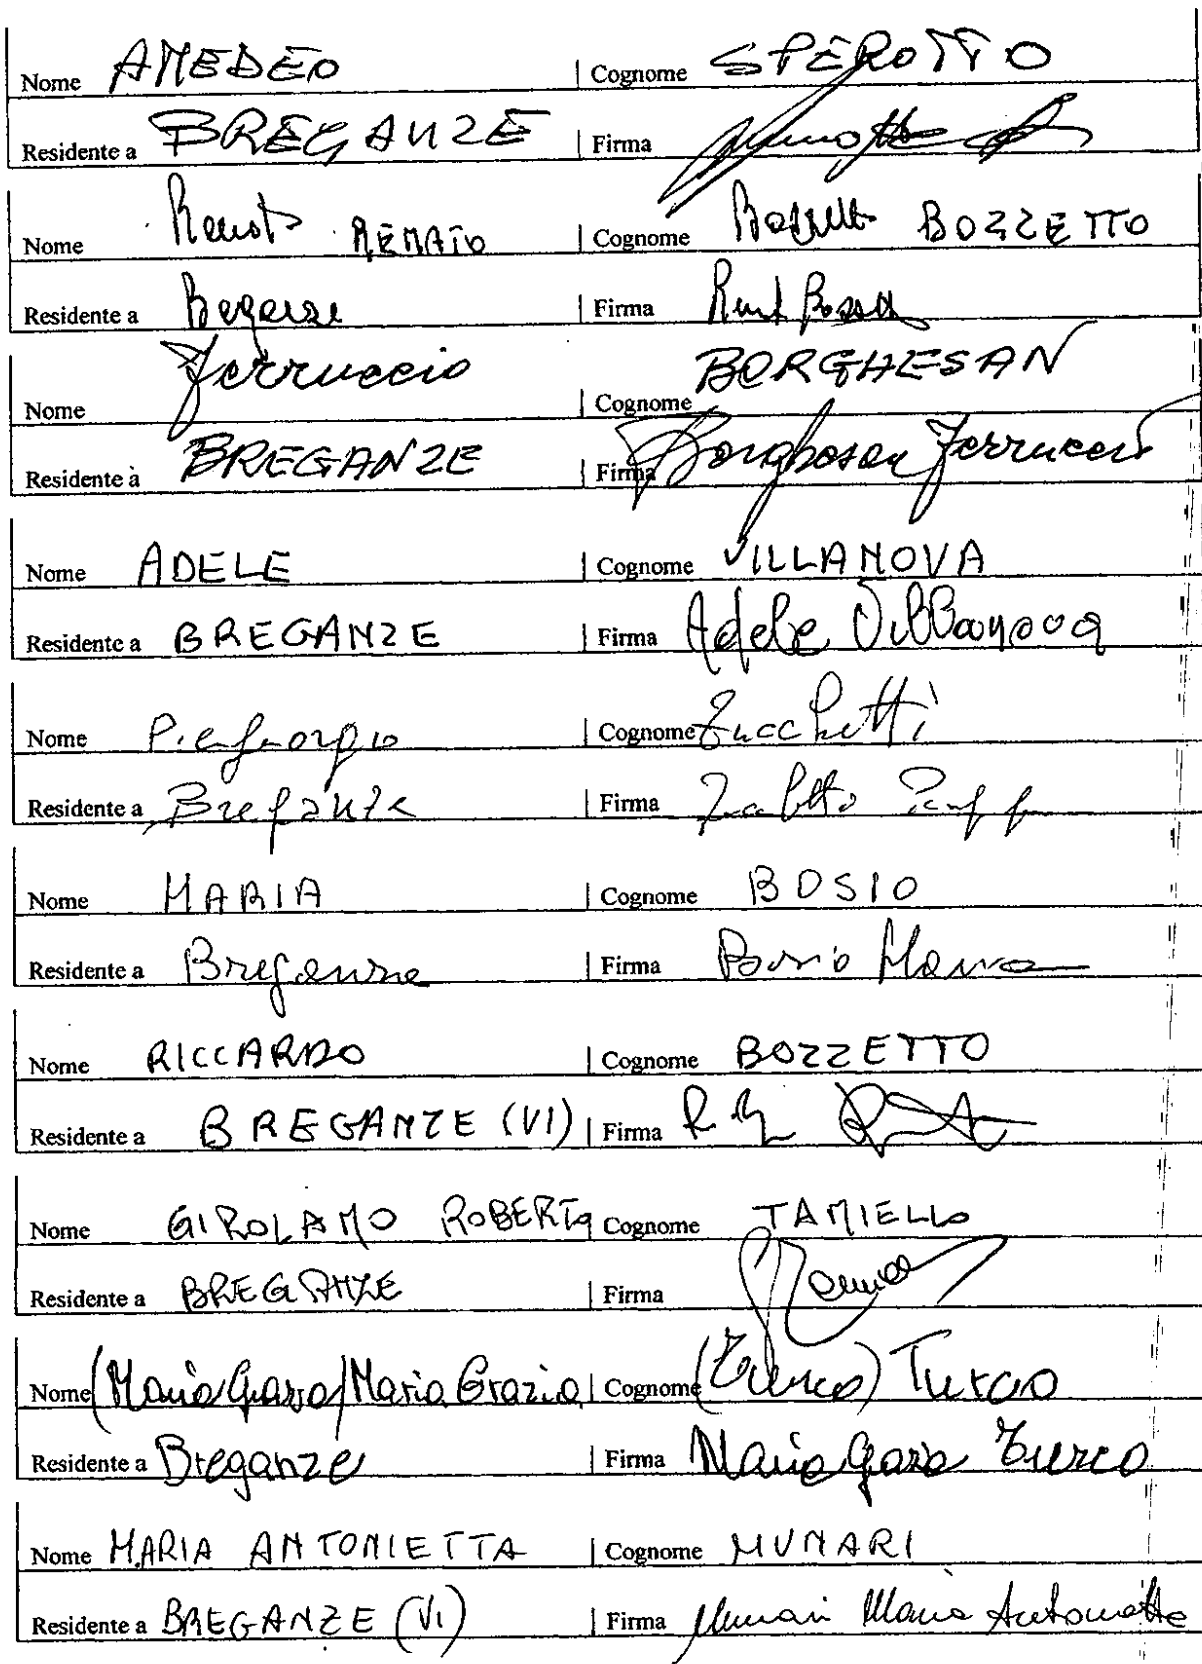 Nome AMEDEO | Cognome SPEROTTO
Residente a BREGANZE | Firma
Nome Renato RENATO | Cognome Bozzetto BOZZETTO
Residente a Breganze | Firma
Nome Ferruccio | Cognome BORGHESAN
Residente a BREGANZE | Firma Borghesan Ferruccio
Nome ADELE | Cognome VILLANOVA
Residente a BREGANZE | Firma Adele Villanova
Nome Piergiorgio | Cognome Zucchetti
Residente a Breganze | Firma
Nome MARIA | Cognome BOSIO
Residente a Breganze | Firma Bosio Maria
Nome RICCARDO | Cognome BOZZETTO
Residente a BREGANZE (VI) | Firma
Nome GIROLAMO ROBERTO Cognome TAMIELLO
Residente a BREGANZE | Firma
Nome (Maria Grazia) Maria Grazia | Cognome (Turco) Turco
Residente a Breganze | Firma Maria Grazia Turco
Nome MARIA ANTONIETTA | Cognome MUNARI
Residente a BREGANZE (VI) | Firma Munari Maria Antonietta